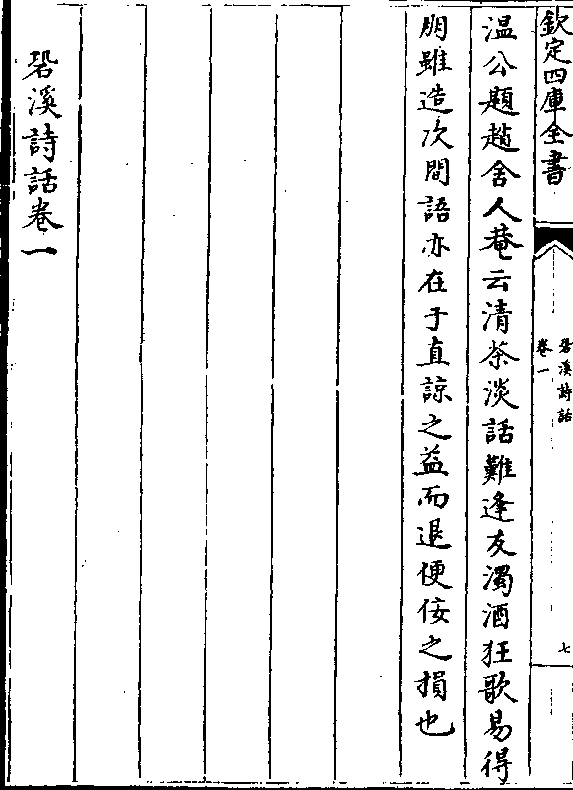 欽定四庫全書
䂬溪詩話
卷一
七
温公題趙舍人菴云清茶淡話難逢友濁酒狂歌易得
朋雖造次間語亦在于直諒之益而退便佞之損也
䂬溪詩話卷一